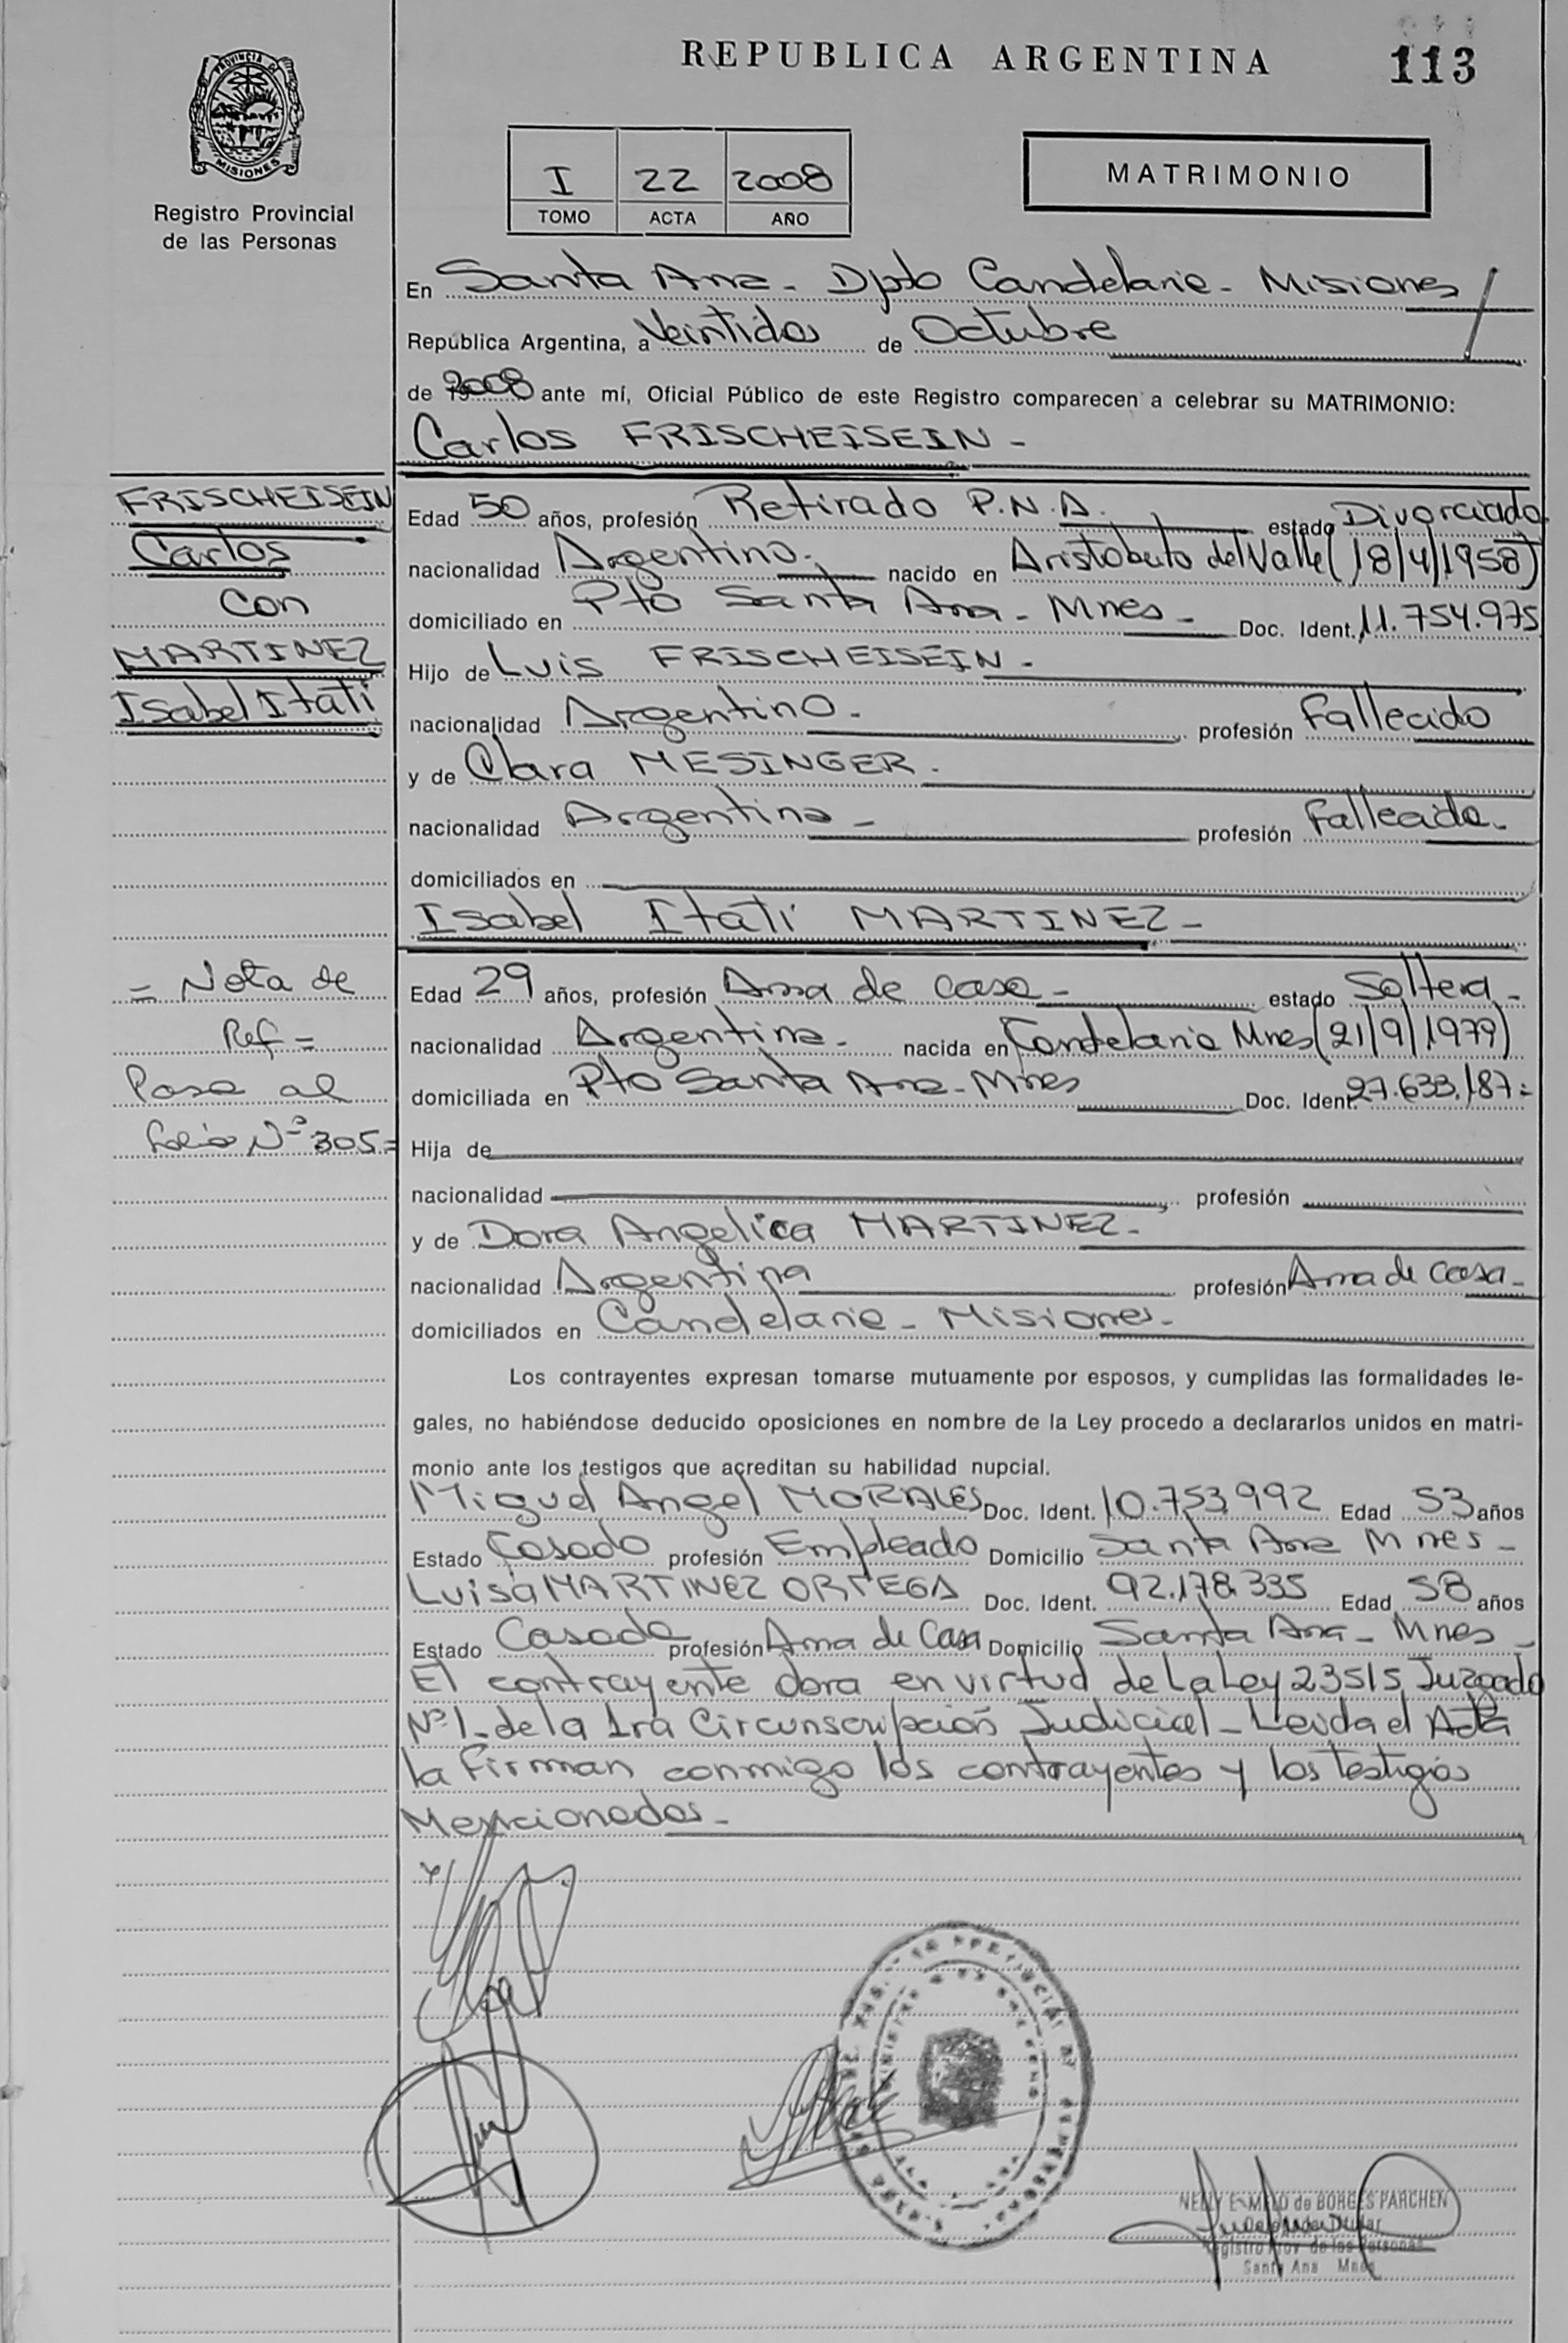 REPUBLICA ARGENTINA 113
PROVINCIA DE
MISIONES
Registro Provincial
de las Personas
I 22 2008
TOMO ACTA AÑO
MATRIMONIO
En Santa Ana - Dpto Candelaria - Misiones
República Argentina, a Veintidos de Octubre
de 2008 ante mí, Oficial Público de este Registro comparecen a celebrar su MATRIMONIO:
Carlos FRISCHEISEIN -
FRISCHEISEIN
Carlos
Con
MARTINEZ
Isabel Itati
Edad 50 años, profesión Retirado P.N.A. estado Divorciado
nacionalidad Argentino. nacido en Aristobulo del Valle (18/4/1958)
domiciliado en Pto Santa Ana - Mnes - Doc. Ident. 11.754.975
Hijo de Luis FRISCHEISEIN -
nacionalidad Argentino - profesión Fallecido
y de Clara MESINGER -
nacionalidad Argentina - profesión Fallecida -
domiciliados en
Isabel Itati MARTINEZ -
= Nota de
Ref =
Pasa al
folio Nº 305 =
Edad 29 años, profesión Ama de Casa - estado Soltera -
nacionalidad Argentina - nacida en Candelaria Mnes (21/9/1979)
domiciliada en Pto Santa Ana - Mnes Doc. Ident. 27.633.187 =
Hija de
nacionalidad profesión
y de Dora Angelica MARTINEZ -
nacionalidad Argentina profesión Ama de Casa -
domiciliados en Candelaria - Misiones -
Los contrayentes expresan tomarse mutuamente por esposos, y cumplidas las formalidades le-
gales, no habiéndose deducido oposiciones en nombre de la Ley procedo a declararlos unidos en matri-
monio ante los testigos que acreditan su habilidad nupcial.
Miguel Angel MORALES Doc. Ident. 10.753.992 Edad 53 años
Estado Casado profesión Empleado Domicilio Santa Ana Mnes -
Luisa MARTINEZ ORTEGA Doc. Ident. 92.178.335 Edad 58 años
Estado Casada profesión Ama de Casa Domicilio Santa Ana - Mnes -
El contrayente obra en virtud de La Ley 23515 Juzgado
Nº 1 - de la 1ra Circunscripción Judicial - Leida el Acta
la Firman conmigo los contrayentes y los testigos
Mencionados -
NELLY E. MELO de BORGES PARCHEN
Delegada Titular
Registro Prov. de las Personas
Santa Ana Mnes